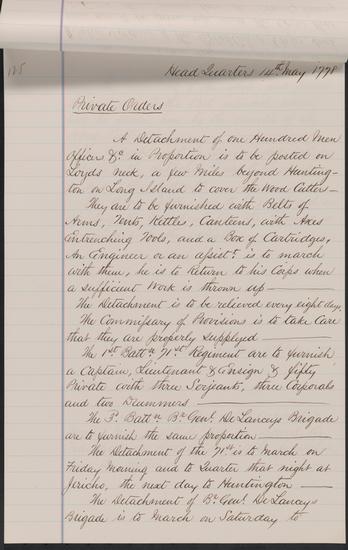 125
Head Quarters 14th May 1778
Private Orders
A Detachment of one Hundred Men
Officers &c in Proportion is to be posted on
Loyds Neck, a few Miles beyond Hunting-
ton on Long Island to cover the Wood Cutters—
They are to be furnished with Belts of
Arms, Tents, Kettles, Canteens, with Axes
Entrenching Tools, and a Box of Cartridges,
An Engineer or an assistt. is to march
with them, he is to Return to his Corps when
a sufficient Work is thrown up—
The Detachment is to be relieved every eight days,
The Commissary of Provisions is to take Care
that they are properly supplyed—
The 1st Battn 71st Regiment are to furnish
a Captain, Lieutenant & Ensign & fifty
Private with three Serjants, three Corporals
and two Drummers—
The Battn Br Genl. DeLanceys Brigade
are to furnish the same proportion—
The Detachment of the 71st is to March on
Friday Morning and to Quarter that night at
Jericho, the next day to Huntington—
The Detachment of Br Genl. DeLanceys
Brigade is to March on Saturday to